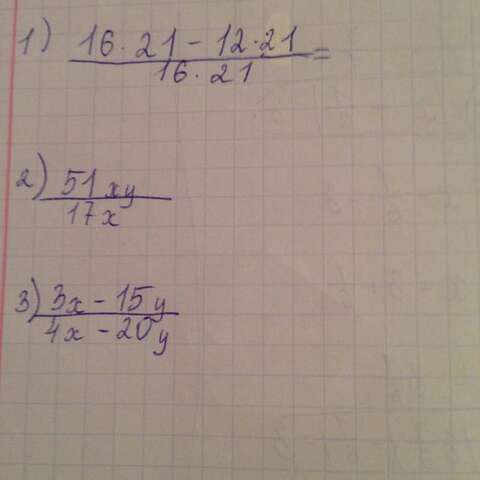 1) 16·21 - 12·21 =
16·21
2) 51xy
17x
3) 3x - 15y
4x - 20y